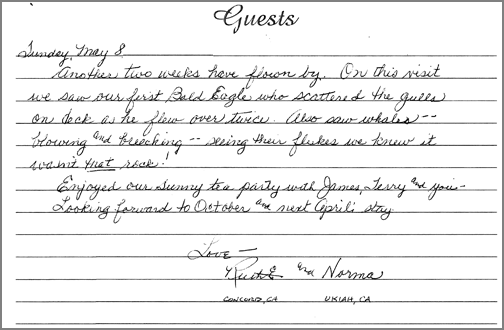 Guests
Sunday, May 8
Another two weeks have flown by. On this visit
we saw our first Bald Eagle who scattered the gulls
on dock as he flew over twice. Also saw whales --
blowing and breeching -- seeing their flukes we knew it
wasn't that rock!
Enjoyed our sunny tea party with James, Terry and you -
Looking forward to October and next April's stay.
Love —
Ruth and Norma
CONCORD, CA UKIAH, CA